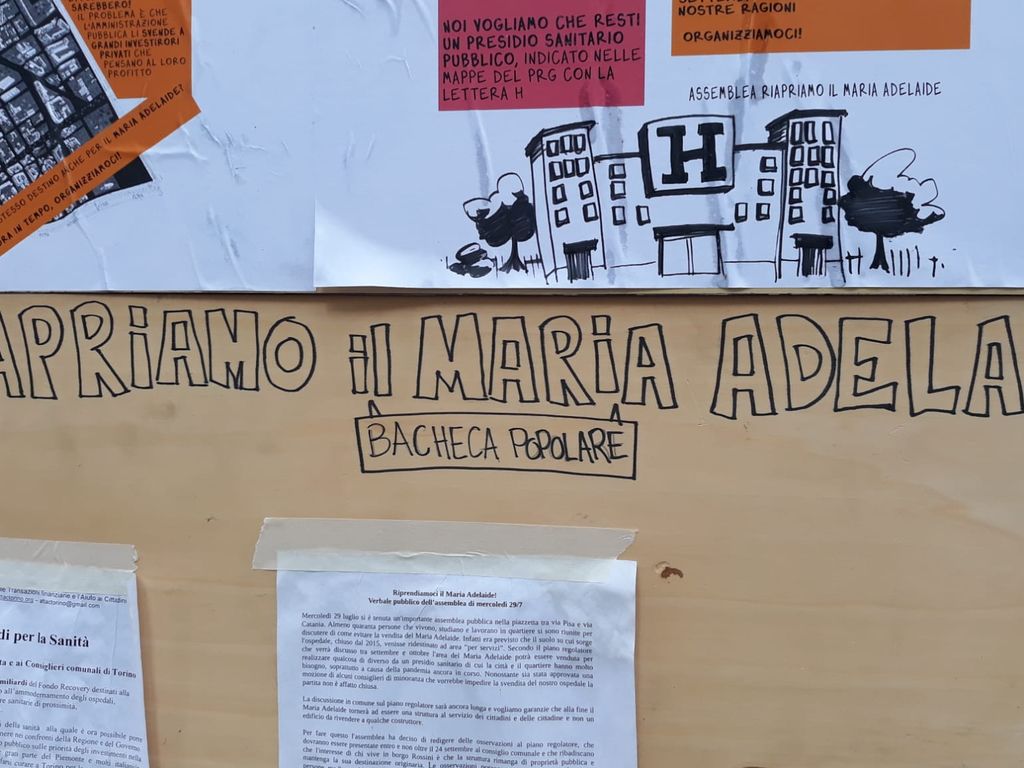 SAREBBERO!
IL PROBLEMA È CHE
L'AMMINISTRAZIONE
PUBBLICA LI SVENDE A
GRANDI INVESTITORI
PRIVATI CHE
PENSANO AL LORO
PROFITTO
STESSO DESTINO ANCHE PER IL MARIA ADELAIDE?
ORA IN TEMPO, ORGANIZZIAMOCI!
NOI VOGLIAMO CHE RESTI
UN PRESIDIO SANITARIO
PUBBLICO, INDICATO NELLE
MAPPE DEL PRG CON LA
LETTERA H
NOSTRE RAGIONI
ORGANIZZIAMOCI!
ASSEMBLEA RIAPRIAMO IL MARIA ADELAIDE
H
APRiAMO il MARiA ADELA
BACHECA POPOLARE
le Transazioni finanziarie e l'Aiuto ai Cittadini
attactorino.org - attactorino@gmail.com
di per la Sanità
ta e ai Consiglieri comunali di Torino
miliardi del Fondo Recovery destinati alla
all'ammodernamento degli ospedali,
re sanitarie di prossimità.
della sanità alla quale è ora possibile porre
nere nei confronti della Regione e del Governo
pubblico sulle priorità degli investimenti nella
gran parte del Piemonte e molti italiani
Riprendiamoci il Maria Adelaide!
Verbale pubblico dell'assemblea di mercoledì 29/7
Mercoledì 29 luglio si è tenuta un'importante assemblea pubblica nella piazzetta tra via Pisa e via
Catania. Almeno quaranta persone che vivono, studiano e lavorano in quartiere si sono riunite per
discutere di come evitare la vendita del Maria Adelaide. Infatti era previsto che il suolo su cui sorge
l'ospedale, chiuso dal 2015, venisse ridestinato ad area "per servizi". Secondo il piano regolatore
che verrà discusso tra settembre e ottobre l'area del Maria Adelaide potrà essere venduta per
realizzare qualcosa di diverso da un presidio sanitario di cui la città e il quartiere hanno molto
bisogno, soprattutto a causa della pandemia ancora in corso. Nonostante sia stata approvata una
mozione di alcuni consiglieri di minoranza che vorrebbe impedire la svendita del nostro ospedale la
partita non è affatto chiusa.
La discussione in comune sul piano regolatore sarà ancora lunga e vogliamo garanzie che alla fine il
Maria Adelaide tornerà ad essere una struttura al servizio dei cittadini e delle cittadine e non un
edificio da rivendere a qualche costruttore.
Per fare questo l'assemblea ha deciso di redigere delle osservazioni al piano regolatore, che
dovranno essere presentate entro e non oltre il 24 settembre al consiglio comunale e che ribadiscano
che l'interesse di chi vive in borgo Rossini è che la struttura rimanga di proprietà pubblica e
mantenga la sua destinazione originaria. Le osservazioni